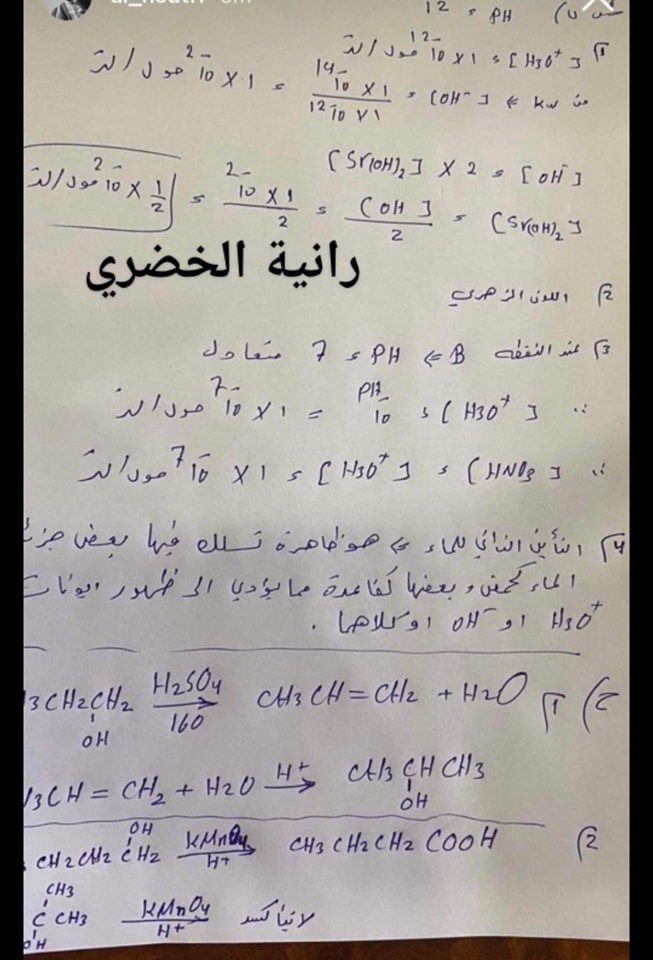 PH = 12
1) [H3O+] = 1 × 10^-12 مول/لتر
من kw ⇐ [OH-] = 1 × 10^-14 / 1 × 10^-12 = 1 × 10^-2 مول/لتر
[OH-] = 2 × [Sr(OH)2]
[Sr(OH)2] = [OH] / 2 = 1 × 10^-2 / 2 = 1/2 × 10^-2 مول/لتر
رانية الخضري
2) اللون الزهري
3) عند النقطة B ⇐ PH = 7 متعادل
∴ [H3O+] = 10^-PH = 1 × 10^-7 مول/لتر
∴ [HNO3] = [H3O+] = 1 × 10^-7 مول/لتر
4) التأين الذاتي للماء ⇐ هو ظاهرة تسلك فيها بعض جزئ
الماء كحمض وبعضها كقاعدة مما يؤدي الى ظهور ايونات
H3O+ او OH- او كلاهما .
ج) 1) 3CH2CH2 H2SO4 → 160 CH3CH=CH2 + H2O
OH
3CH = CH2 + H2O H+ → CH3 CH CH3
OH
OH
2) CH2CH2 CH2 KMnO4 → H+ CH3 CH2 CH2 COOH
CH3
C CH3 KMnO4 → H+ لا يتأكسد
OH